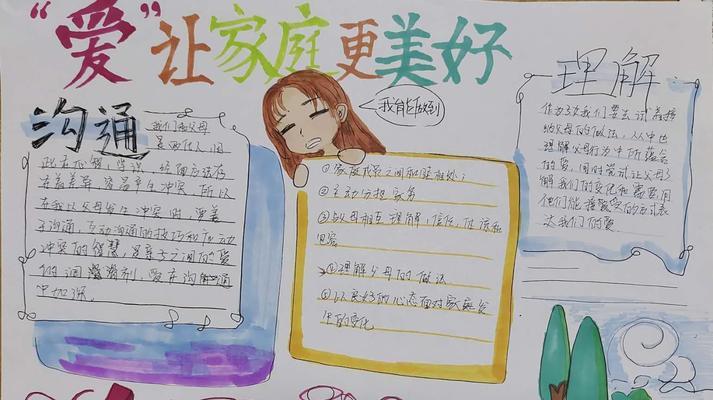 “爱”让家庭更美好
沟通
我们和父母
是两代人,因
此在心理,学识,经历应该存
在着差异,容易产生冲突,所以
在我以父母发生冲突时,更善
于沟通,互动沟通的技巧和
冲突的智慧,是亲子之间的爱
的润滑剂,爱在沟通
中加强。
我能做到
①家庭成员之间和睦相处;
②主动分担家务
③与父母相互理解,信任,体谅和
包容
④理解父母的做法
⑤以良好的心态面对家庭发
生的变化
理解
作为子女我们要去试着接
纳父母的做法,从中也
理解父母行为中所蕴含
的爱,同时尝试让父母了
解我们的变化和需要,用
他们能接受的形式表
达我们的爱